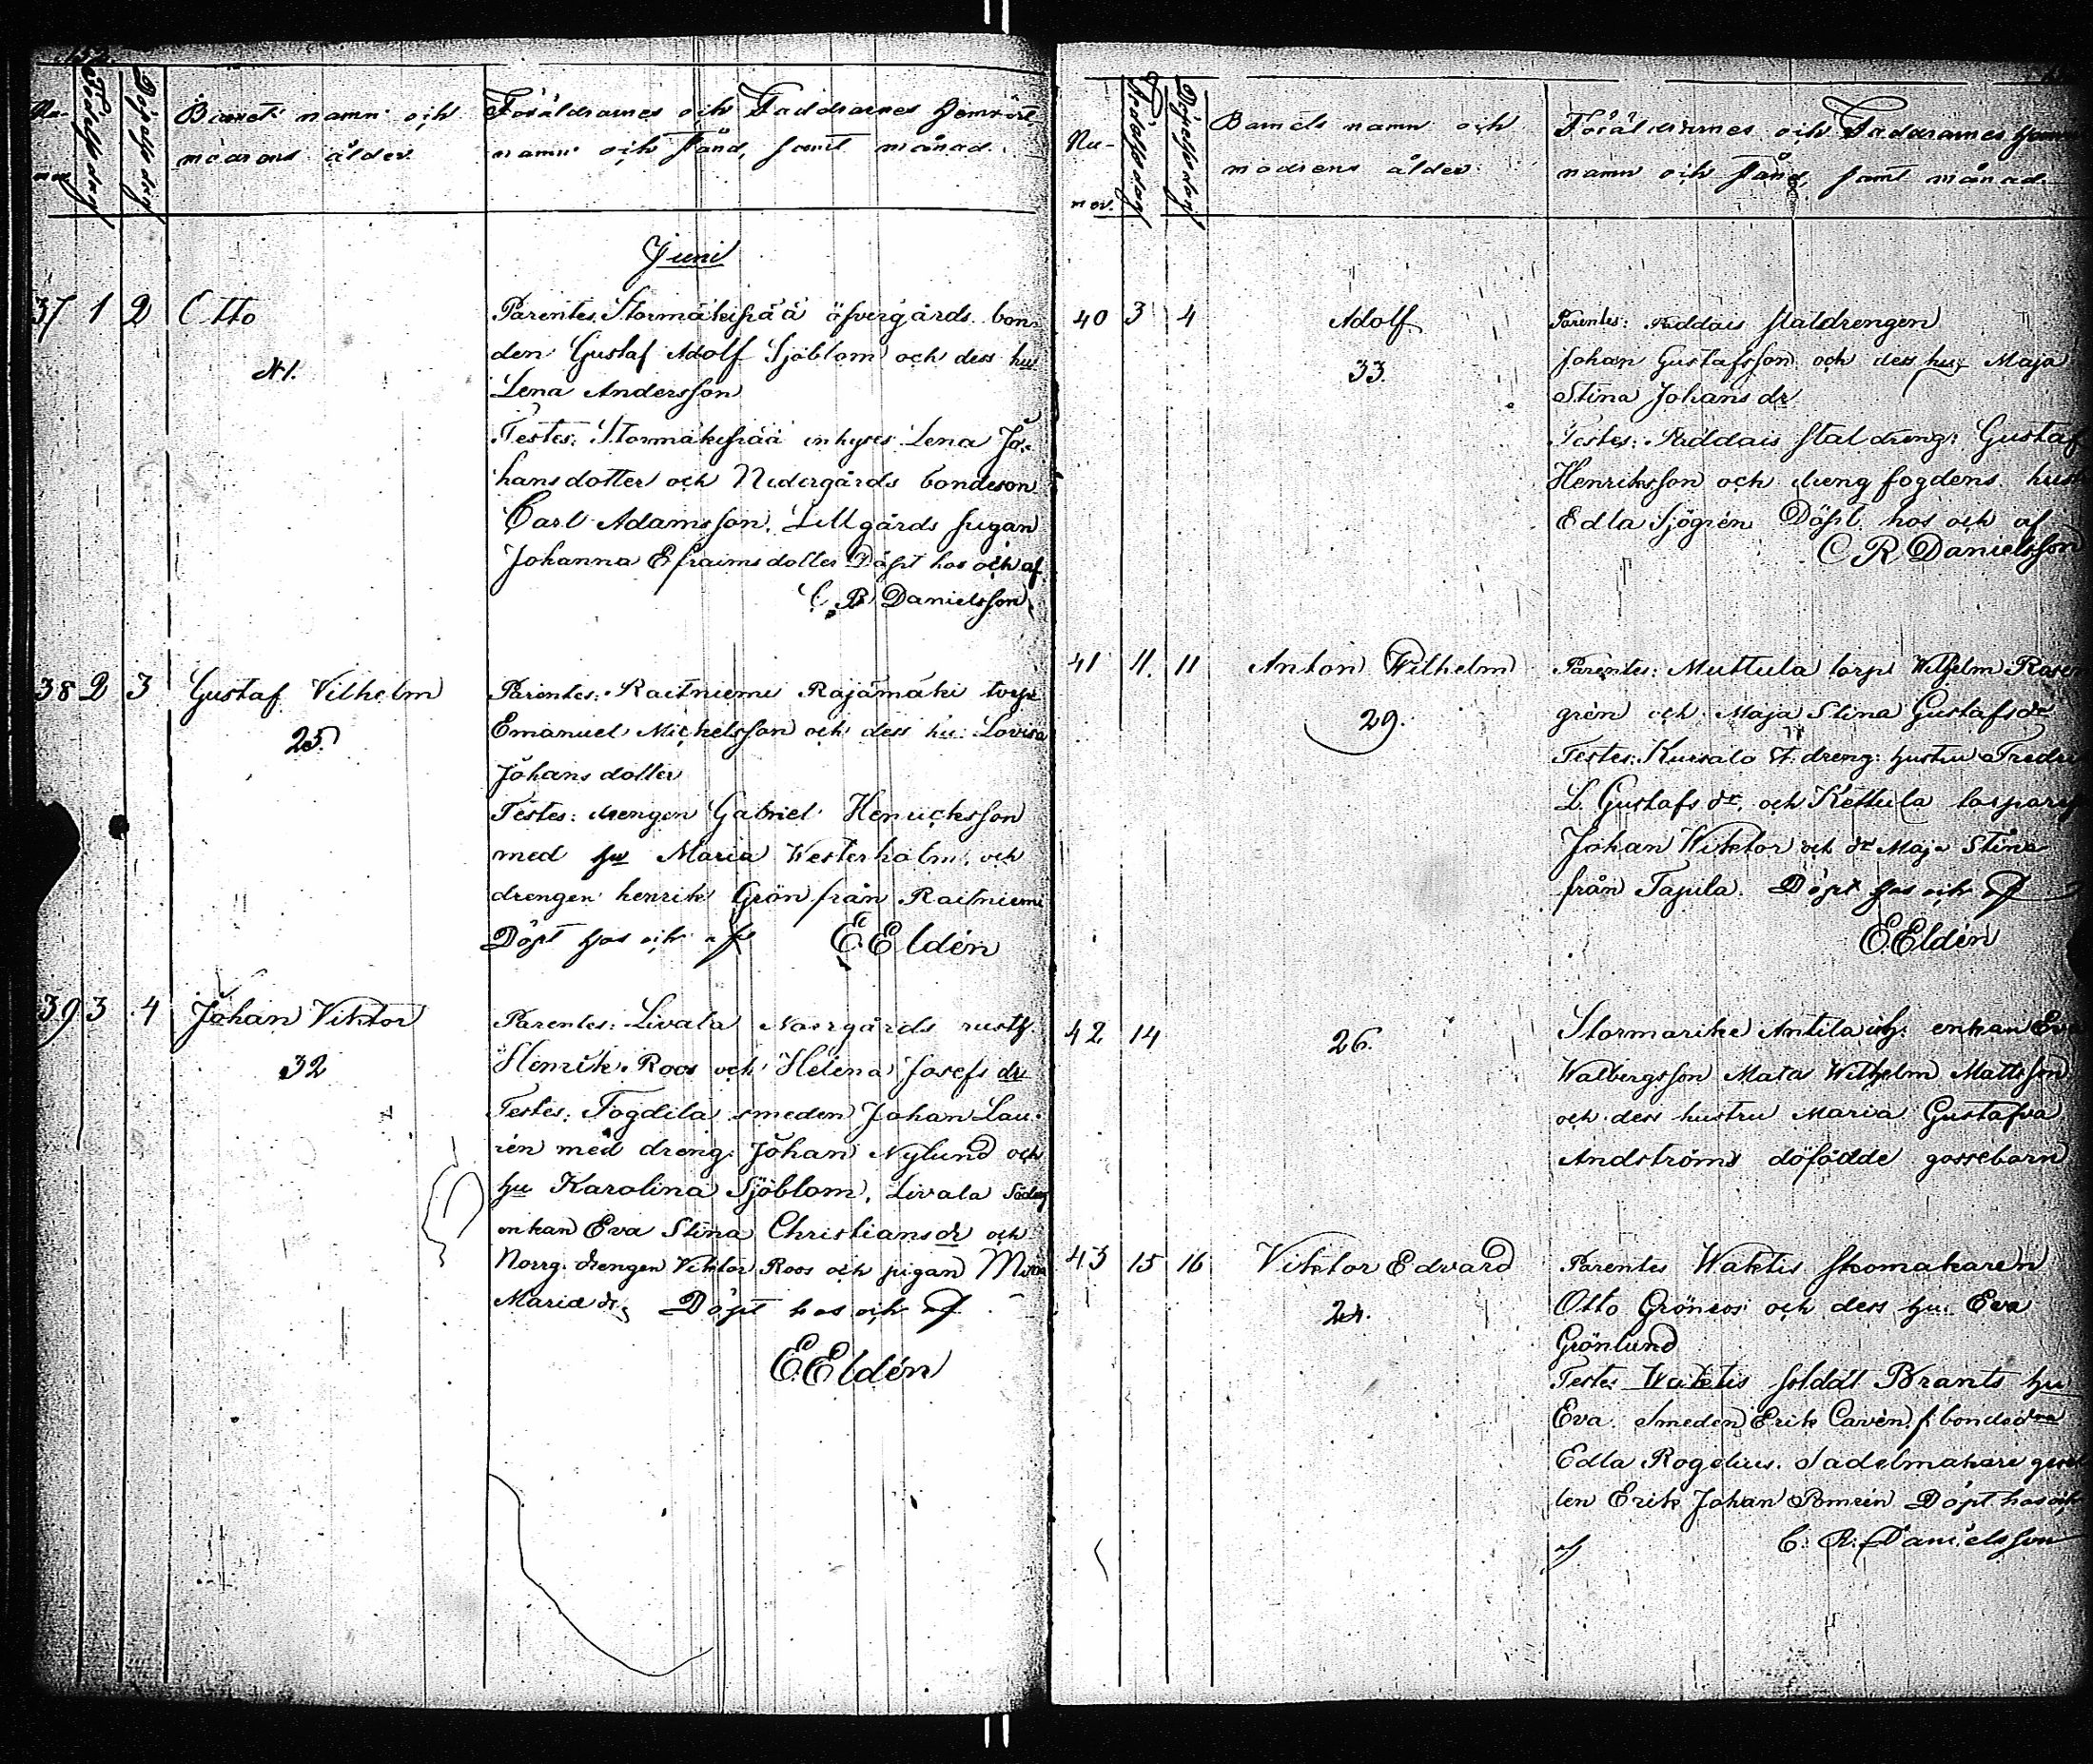 Nu-
mer
Födelsedag
Döpelsedag
Barnets namn och
modrens ålder
Föräldrarnes och Faddrarnes Hemvist,
namn och stånd, samt månad.
Juni
37 1 2 Otto
41.
Parentes. Stormäkipää öfvergårds bon-
den Gustaf Adolf Sjöblom och dess hu
Lena Andersson
Testes: Stormäkipää inhyses Lena Jo-
hansdotter och Nedergårds bondeson
Carl Adamsson. Lillgårds pigan
Johanna Efraimsdotter Döpt hos och af
C. R. Danielsson
38 2 3 Gustaf Vilhelm
25.
Parentes: Raitniemi Rajamäki torp
Emanuel Michelsson och dess hu: Lovisa
Johans dotter
Testes: drengen Gabriel Henricksson
med hu Maria Westerholm, och
drengen henrik Grön från Raitniemi
Döpt hos och af E. Eldén
39 3 4 Johan Viktor
32
Parentes: Livala Norrgårds rusth.
Henrik Roos och Helena Josefs dr
Testes: Fogdila smeden Johan Lau-
rén med dreng: Johan Nylund och
hu Karolina Sjöblom, Livala Söderg
enkan Eva Stina Christians dr och
Norrg. drengen Viktor Roos och pigan
Maria dr, Döpt hos och af
E. Eldén
Nu-
mer.
Födelsedag
Döpelsedag
Barnets namn och
modrens ålder
Föräldrarnes och Faddrarnes Hem
namn och stånd, samt månad.
40 3 4 Adolf
33.
Parentes: Niddais staldrengen
Johan Gustafsson och dess hu: Maja
Stina Johans dr
Testes: Niddais staldreng: Gustaf
Henriksson och dreng fogdens hust
Edla Sjögrén Döpt hos och af
C R Danielsson
41 11. 11 Anton Wilhelm
29.
Parentes: Muttula torp Wilhelm Rosen
grén och Maja Stina Gustafs dr
Testes: Kursala st. dreng: hustru Fredri
L. Gustafs dr, och Kettula torpare
Johan Wiktor och dr Maja Stina
från Tapila. Döpt hos och af
E. Eldén
42 14
26.
Stormarike Antila enkan Eva
Walbergsson Mats Wilhelm Mattsson
och dess hustru Maria Gustafva
Andströms döfödde gossebarn
43 15 16 Viktor Edvard
24.
Parentes Waktis skomakaren
Otto Grönroos och dess hu: Eva
Grönlund
Testes Waktis soldat Brants hu
Eva. Smeden Erik Cavén, f. bonde
Edla Rogelius. Sadelmakare gesel
len Erik Johan Bomrén Döpt hos och
af C. R. Danielsson